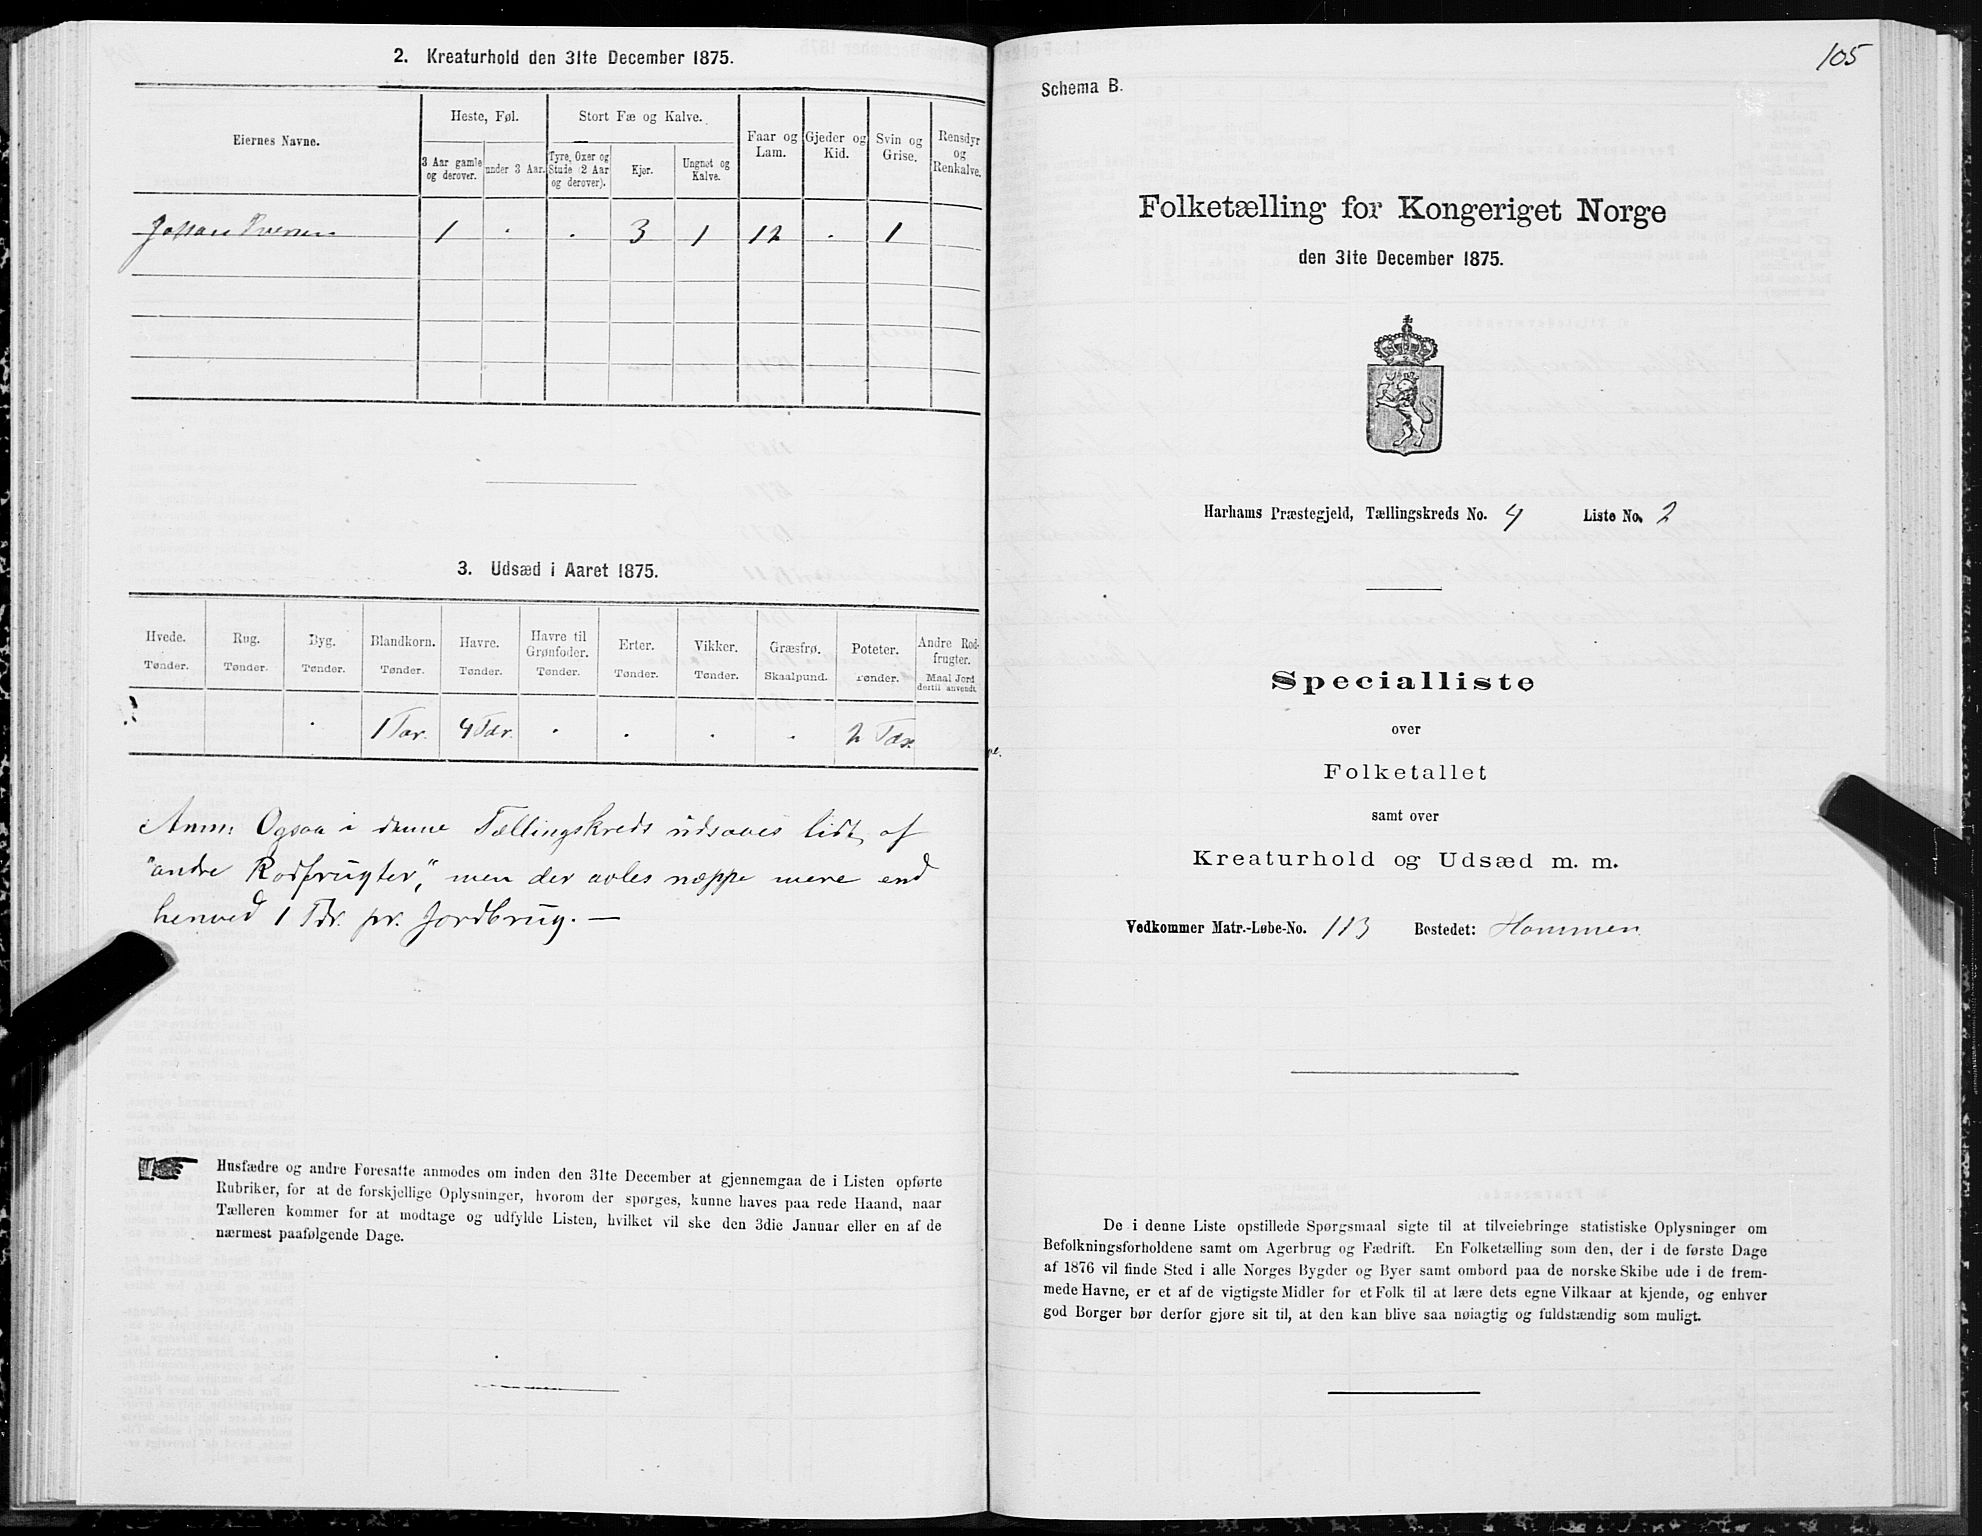 2. Kreaturhold den 31te December 1875.
Eiernes Navne.
Heste, Føl.
Stort Fæ og Kalve.
Faar og Lam.
Gjeder og Kid.
Svin og Grise.
Rensdyr og Renkalve.
3 Aar gamle og derover.
under 3 Aar.
Tyre, Oxer og Stude (2 Aar og derover).
Kjør.
Ungnøt og Kalve.
Johan Iversen 1 . . 3 1 12 . 1
3. Udsæd i Aaret 1875.
Hvede. Rug. Byg. Blandkorn. Havre. Havre til Grønfoder. Erter. Vikker. Græsfrø. Poteter. Andre Rodfrugter.
Tønder. Tønder. Tønder. Tønder. Tønder. Tønder. Tønder. Tønder. Skaalpund. Tønder. Maal Jord dertil anvendt.
. 1 Tdr. 4 Tdr. . . . . 2 Tdr.
Anm: Ogsaa i denne Tællingskreds udsaaes lidt af
"andre Rodfrugter," men der avles næppe mere end
henved 1 Tdr. pr. Jordbrug. —
Husfædre og andre Foresatte anmodes om inden den 31te December at gjennemgaa de i Listen opførte
Rubriker, for at de forskjellige Oplysninger, hvorom der spørges, kunne haves paa rede Haand, naar
Tælleren kommer for at modtage og udfylde Listen, hvilket vil ske den 3die Januar eller en af de
nærmest paafølgende Dage.
105
Schema B.
Folketælling for Kongeriget Norge
den 31te December 1875.
Harhams Præstegjeld, Tællingskreds No. 4 Liste No. 2
Specialliste
over
Folketallet
samt over
Kreaturhold og Udsæd m. m.
Vedkommer Matr.-Løbe-No. 113 Bostedet: Hammen
De i denne Liste opstillede Spørgsmaal sigte til at tilveiebringe statistiske Oplysninger om
Befolkningsforholdene samt om Agerbrug og Fædrift. En Folketælling som den, der i de første Dage
af 1876 vil finde Sted i alle Norges Bygder og Byer samt ombord paa de norske Skibe ude i de frem-
mede Havne, er et af de vigtigste Midler for et Folk til at lære dets egne Vilkaar at kjende, og enhver
god Borger bør derfor gjøre sit til, at den kan blive saa nøiagtig og fuldstændig som muligt.